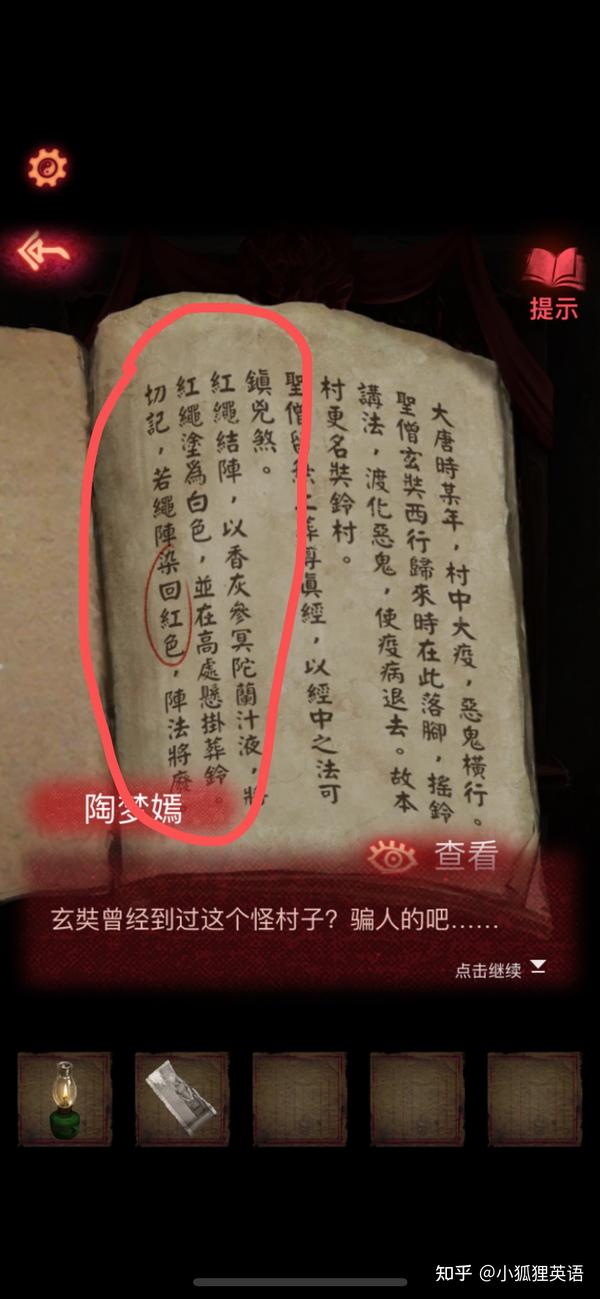 提示
大唐時某年，村中大疫，惡鬼橫行。
聖僧玄奘西行歸來時在此落腳，搖鈴
講法，渡化惡鬼，使疫病退去。故本
村更名奘鈴村。
聖僧留葬尊眞經，以經中之法可
鎮兇煞。
紅繩結陣，以香灰參冥陀蘭汁液，將
紅繩塗爲白色，並在高處懸掛葬鈴。
切記，若繩陣染回紅色，陣法將廢
陶梦嫣
查看
玄奘曾经到过这个怪村子？骗人的吧……
点击继续
知乎 @小狐狸英语